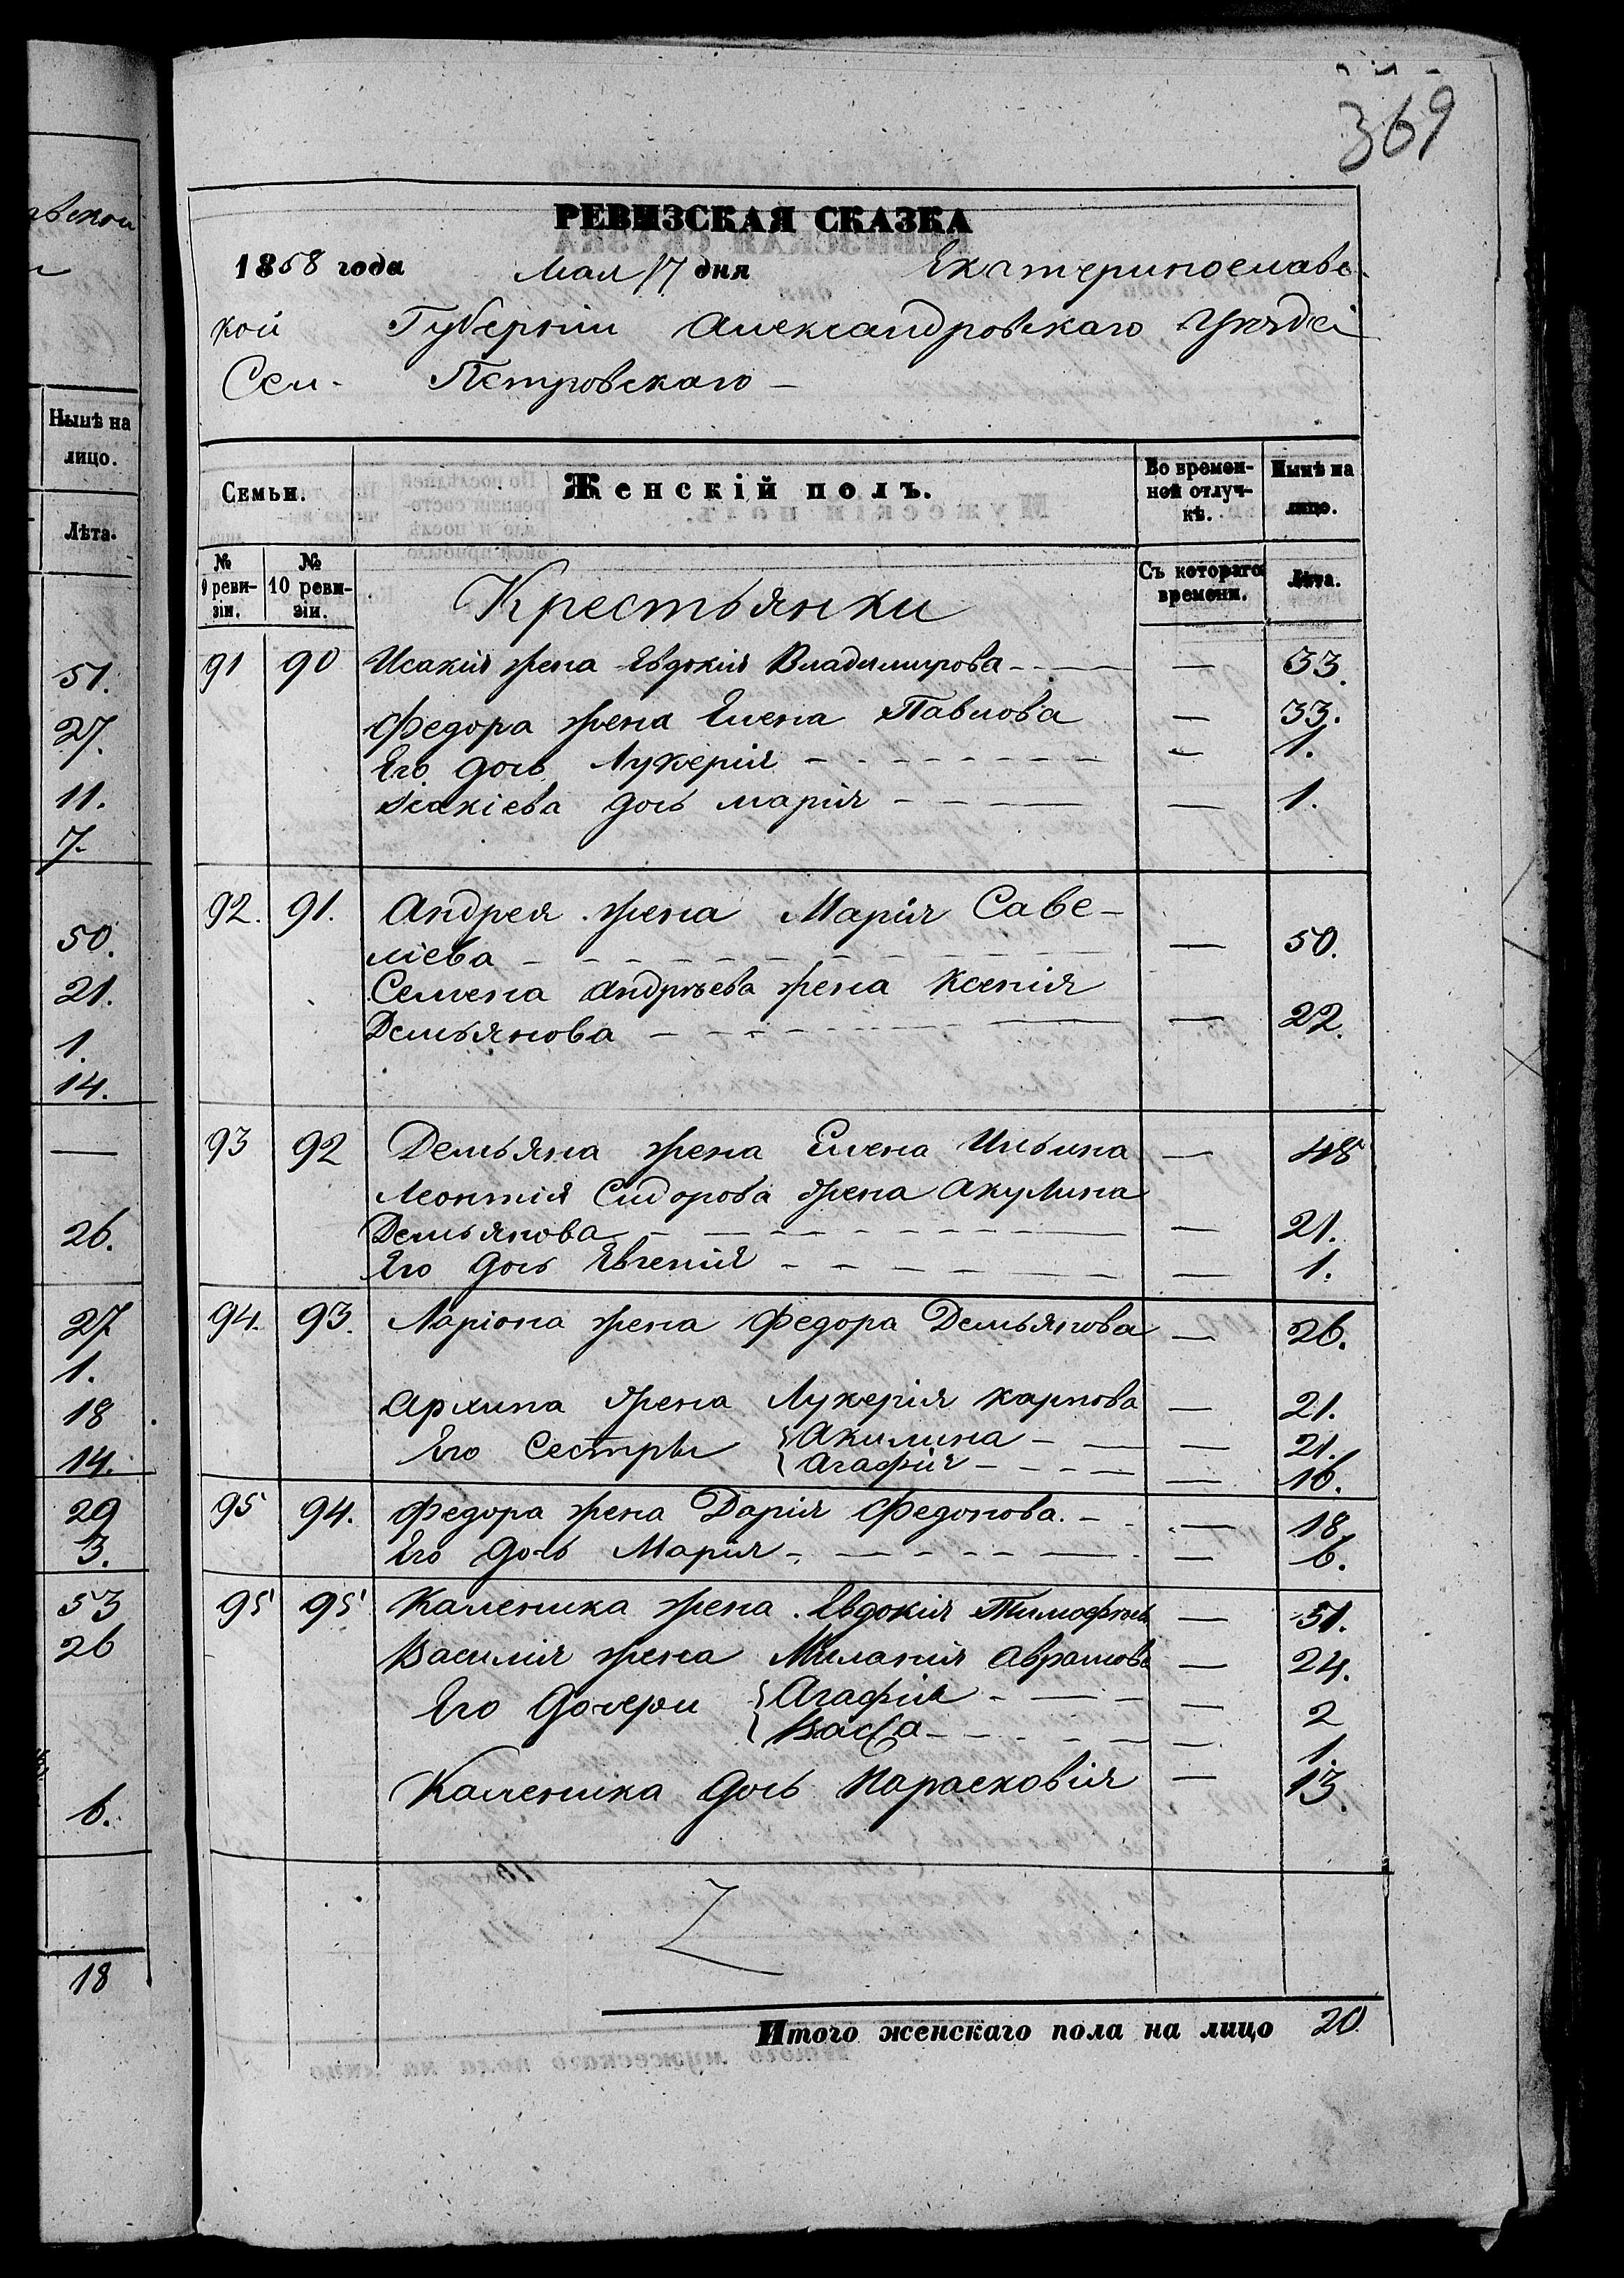 369
РЕВИЗСКАЯ СКАЗКА
1858 года Мая 17 дня Екатеринославс-
кой Губерніи Александровскаго Уѣзда
Сел- Петровскаго -
Семьи. Женскій полъ. Во времен-ной отлуч-кѣ. Нынѣ на лицо.
№ 9 реви-зіи. № 10 реви-зіи. Крестьянки Съ котораго времени. Лѣта.
91 90 Исакія жена Евдокія Владимирова - - — — 33.
Федора жена Елена Павлова — 33.
Его дочь Лукерія - - - - - - — 1.
Исакіева дочь Марія - - - — — 1.
92. 91. Андрея жена Марія Саве-
ліева - - - - - - — 50.
Семена Андрѣева жена Ксенія
Демьянова - - - - - — — 22.
93 92 Демьяна жена Елена Ильина — 48
Леонтія Сидорова жена Акулина
Демьянова - - - - - — — 21.
Его дочь Евгенія - - - - — — 1.
94. 93. Ларіона жена Федора Демьянова — 26.
Архипа жена Лукерія Карпова — 21.
Его Сестры { Акилина - — — 21.
{ Агафія - - - — — 16.
95 94. Федора жена Дарія Федонова. - - — 18.
Его дочь Марія - - - - — — 6.
95 95 Каленика жена Евдокія Тимофѣев — 51.
Василія жена Миланія Аврамова — 24.
Его дочери { Агафія - — - — 2
{ Васса - - - - — — 1.
Каленика дочь Парасковія — 13.
Итого женскаго пола на лицо 20
Нынѣ на
лицо.
Лѣта.
51.
27.
11.
7.
50.
21.
1.
14.
—
26.
27
1.
18
14.
29
3.
53
26
6.
18